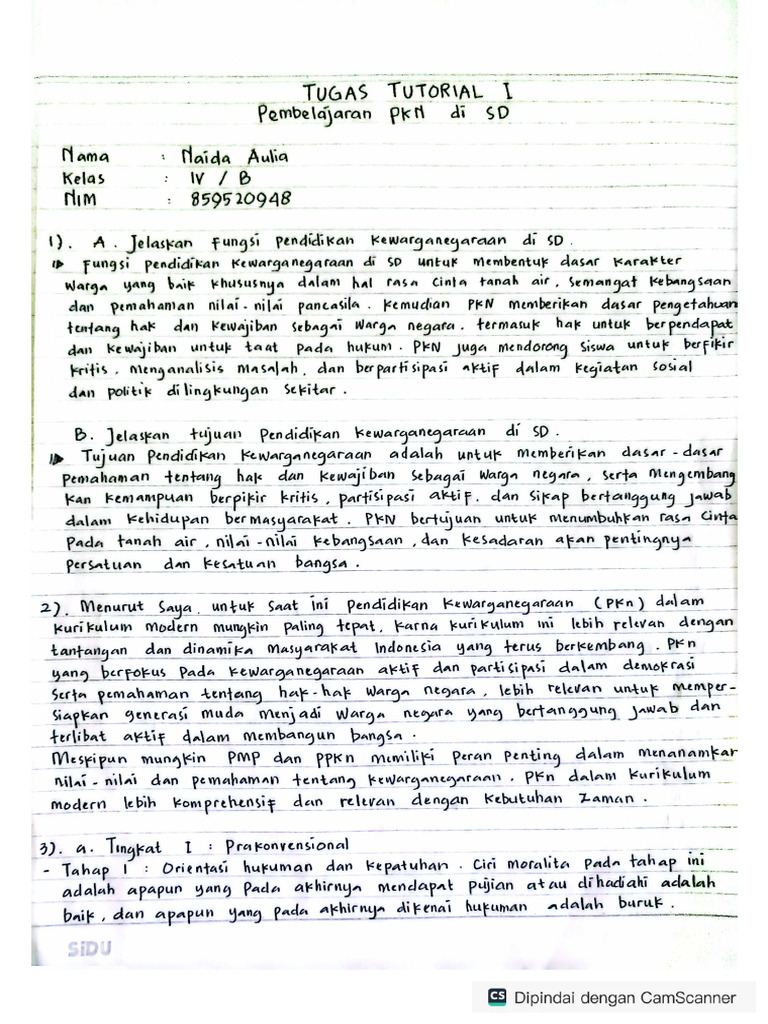 TUGAS TUTORIAL I
Pembelajaran PKN di SD
Nama : Naida Aulia
Kelas : IV / B
NIM : 859520948
1). A. Jelaskan Fungsi Pendidikan Kewarganegaraan di SD.
Fungsi Pendidikan Kewarganegaraan di SD untuk membentuk dasar karakter
warga yang baik khususnya dalam hal rasa cinta tanah air, semangat kebangsaan
dan pemahaman nilai-nilai pancasila. Kemudian PKN memberikan dasar pengetahuan
tentang hak dan kewajiban sebagai warga negara. termasuk hak untuk berpendapat
dan kewajiban untuk taat pada hukum. PKN juga mendorong siswa untuk berfikir
kritis, menganalisis masalah, dan berpartisipasi aktif dalam kegiatan sosial
dan politik dilingkungan sekitar.
B. Jelaskan tujuan Pendidikan Kewarganegaraan di SD.
Tujuan Pendidikan Kewarganegaraan adalah untuk memberikan dasar-dasar
pemahaman tentang hak dan kewajiban sebagai warga negara, serta mengembang
kan kemampuan berpikir kritis, partisipasi aktif. dan sikap bertanggung jawab
dalam kehidupan bermasyarakat. PKN bertujuan untuk menumbuhkan rasa cinta
pada tanah air, nilai-nilai kebangsaan, dan kesadaran akan pentingnya
persatuan dan kesatuan bangsa.
2). Menurut saya, untuk saat ini Pendidikan Kewarganegaraan (PKn) dalam
kurikulum modern mungkin paling tepat, karna kurikulum ini lebih relevan dengan
tantangan dan dinamika masyarakat Indonesia yang terus berkembang. PKn
yang berfokus pada kewarganegaraan aktif dan partisipasi dalam demokrasi
serta pemahaman tentang hak-hak warga negara, lebih relevan untuk memper-
siapkan generasi muda menjadi warga negara yang bertanggung jawab dan
terlibat aktif dalam membangun bangsa.
Meskipun mungkin PMP dan PPKn memiliki peran penting dalam menanamkan
nilai-nilai dan pemahaman tentang kewarganegaraan. PKn dalam kurikulum
modern lebih komprehensif dan relevan dengan kebutuhan zaman.
3). a. Tingkat I : Prakonvensional
- Tahap 1 : Orientasi hukuman dan kepatuhan. Ciri moralita pada tahap ini
adalah apapun yang pada akhirnya mendapat pujian atau dihadiahi adalah
baik, dan apapun yang pada akhirnya dikenai hukuman adalah buruk.
SiDU
CS Dipindai dengan CamScanner